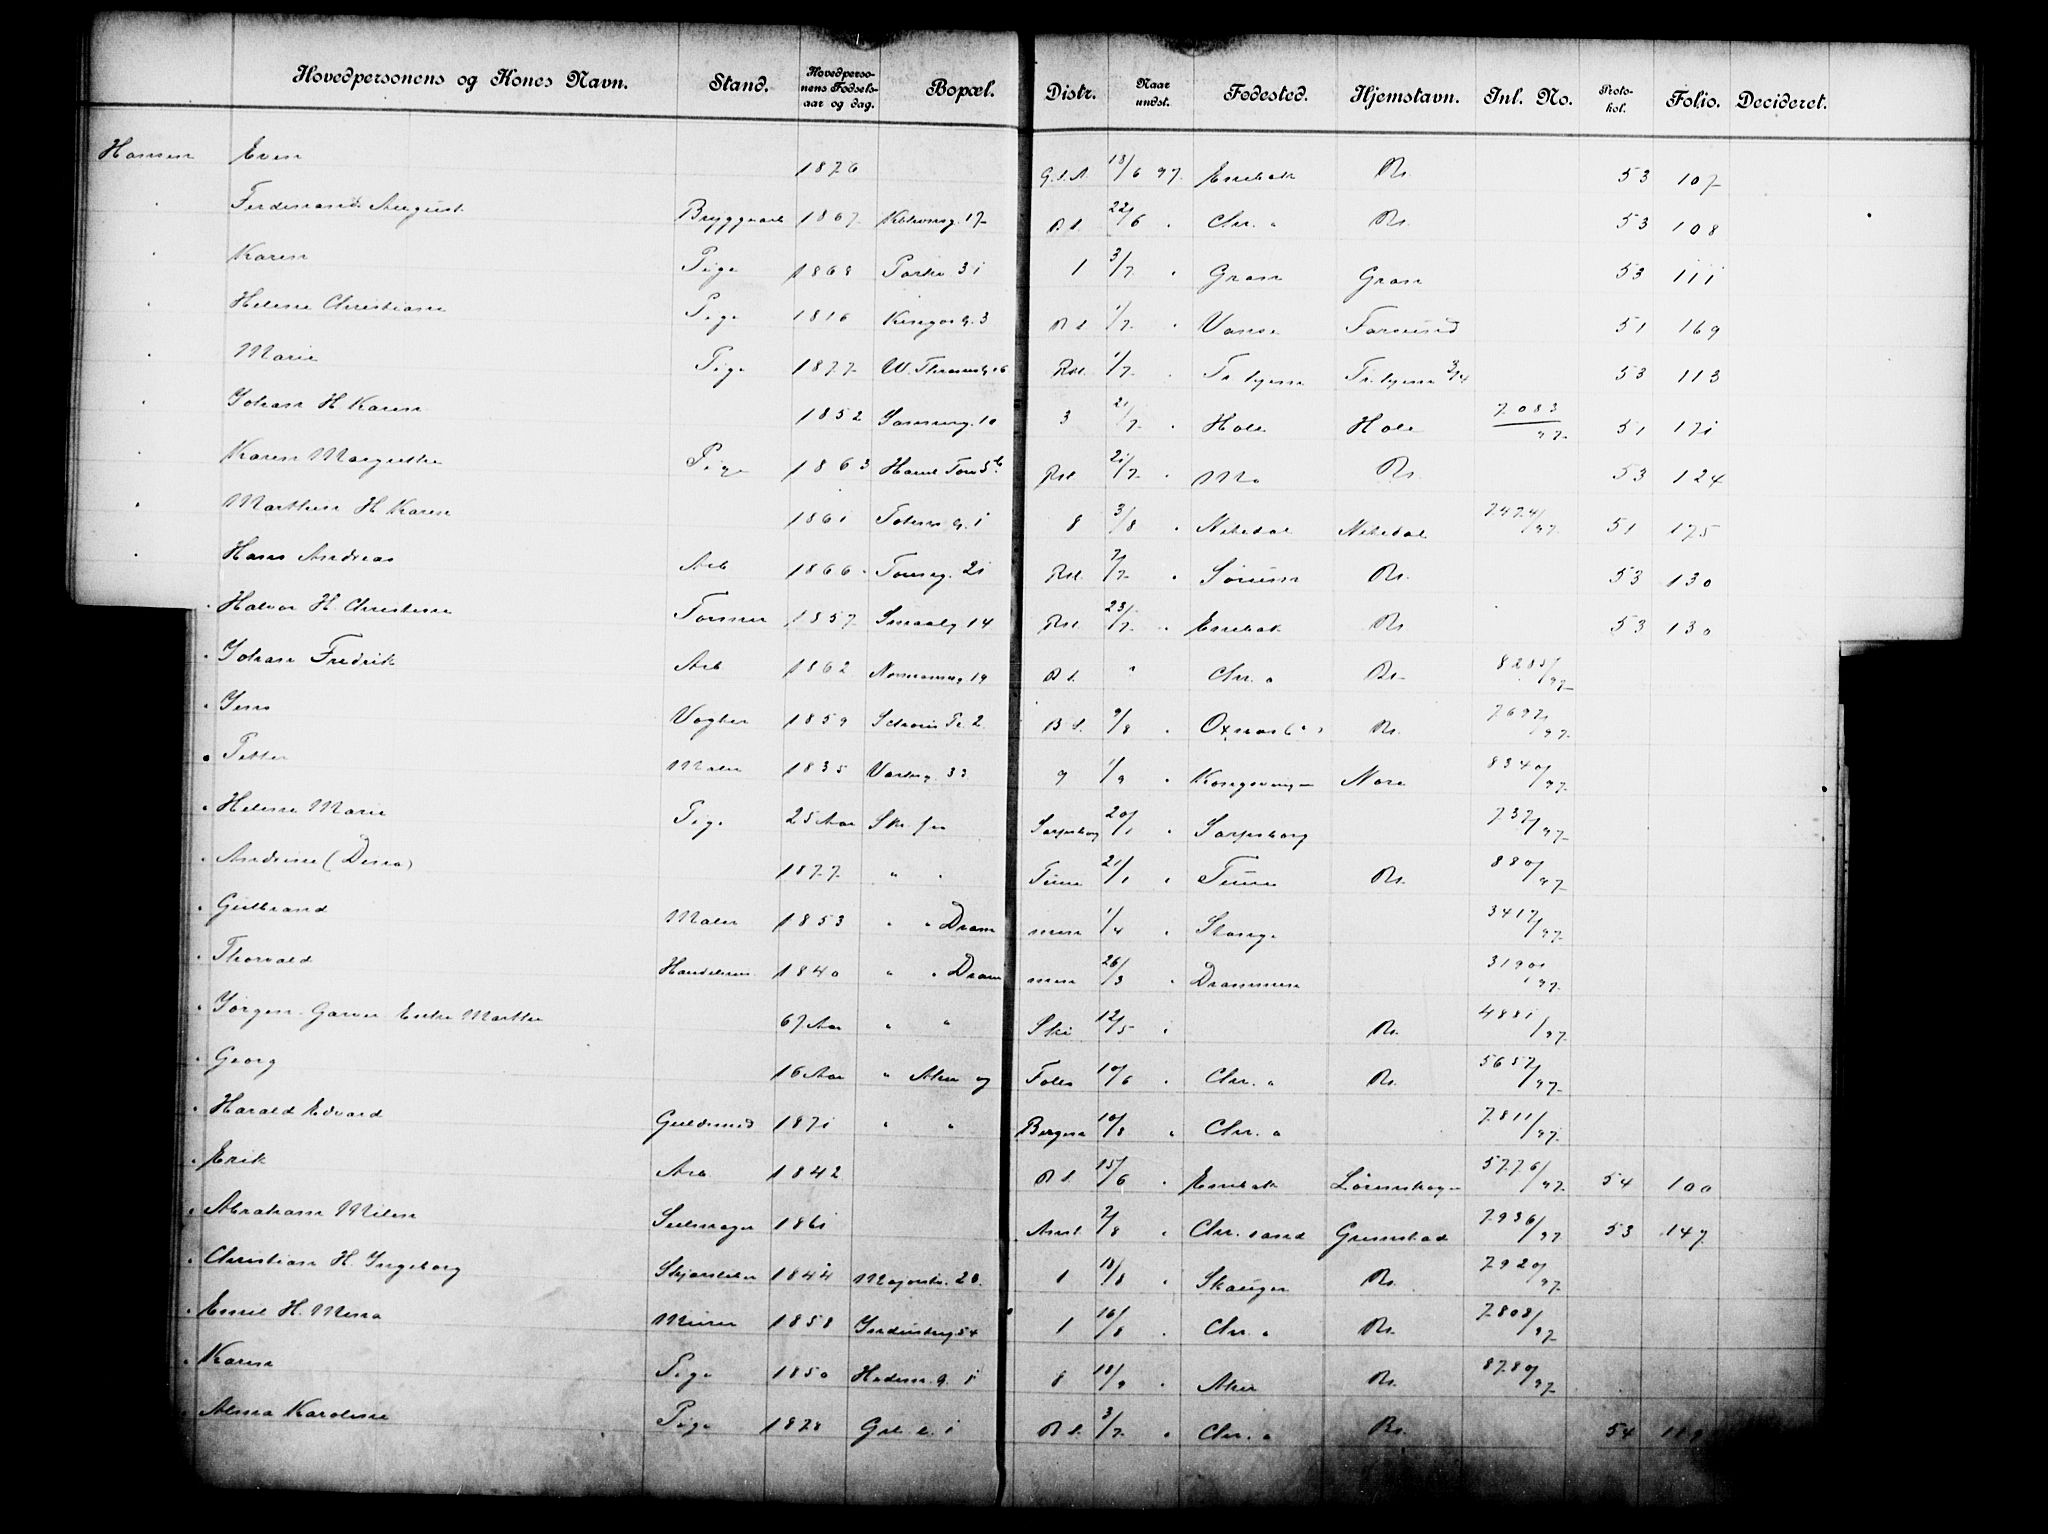 Hovedpersonens og Kones Navn. Stand. Hovedperso-nens Fødsels-aar og dag. Bopæl. Distr. Naar undst. Fødested. Hjemstavn. Inl. No. Proto-kol. Folio. Decideret.
Hansen Even 1876 18/6 97. Enebak Kr. 53 107
" Ferdinand August 1867 17 Bl. 22/6 " Chr.a Kr. 53 108
" Karen Pige 1868 Parkv 31 1 3/7 " Gran Gran 53 111
" Helene Christiane Pige 1816 Kingos g. 3 Bl. 1/7 " Vanse Farsund 51 169
" Marie Pige 1877 W. Thranes g. 16 Rst. 1/7 " 53 113
" Johan H. Karen 1852 10 3 21/7 " Hole Hole 7083/97 51 171
" Karen Margrethe Pige 1863 Rst. 21/7 " Mo Kr. 53 124
" Marthin H. Karen 1861 g. 1 8 3/8 " Nitedal Nitedal 7474/97 51 175
" Hans Andreas Arb 1866 21 Rst. 7/7 " Sørum Kr. 53 130
" Halvor H. Christine Tømmer 1857 Smaalg 14 Rst. 23/7 " Enebak Kr. 53 130
" Johan Fredrik Arb 1862 19 Bl. " Chr.a Kr. 8285/97
" Jens Vogter 1859 Schous Pl. 2. Bl. 9/8 " Kr. 7697/97
" Petter Maler 1835 33 9 1/9 " Kongsvinger Nore 8340/97
" Helene Marie Pige 25 Aar Skr. fra Sarpsborg 20/1 " Sarpsborg 737/97
" Andrine (Dina) 1877 " " Tune 21/1 " Tune Kr. 880/97
" Gulbrand Maler 1853 " " Drammen 1/4 " Stange 3417/97
" Thorvald Handelsm. 1840 " " Drammen 26/3 " Drammen 3190/97
" Jørgen Garver Enke Marthe 67 Aar " " Ski 12/5 " Kr. 4881/97
" Georg 16 Aar " Aker og Follo 10/6 " Chr.a Kr. 5657/97
" Harald Edvard Guldsmed 1871 " " Bergen 10/8 " Chr.a 7811/97
" Erik Arb. 1842 Bl. 15/6 " Enebak Lørenskogen 5776/97 54 100
" Abraham Milen Seilmager 1861 2/8 " Chr.sand Grimstad 7936/97 53 147
" Christian H. Ingeborg 1844 Majorstv. 20 1 18/8 " Skauger Kr. 7920/97
" Emil H. Mina Murer 1858 54 1 16/8 " Chr.a Kr. 7808/97
" Karen Pige 1850 g. 1 8 18/9 " Aker Kr. 8780/97
" Alma Karoline Pige 1878 Bl. 3/7 " Chr.a Kr. 54